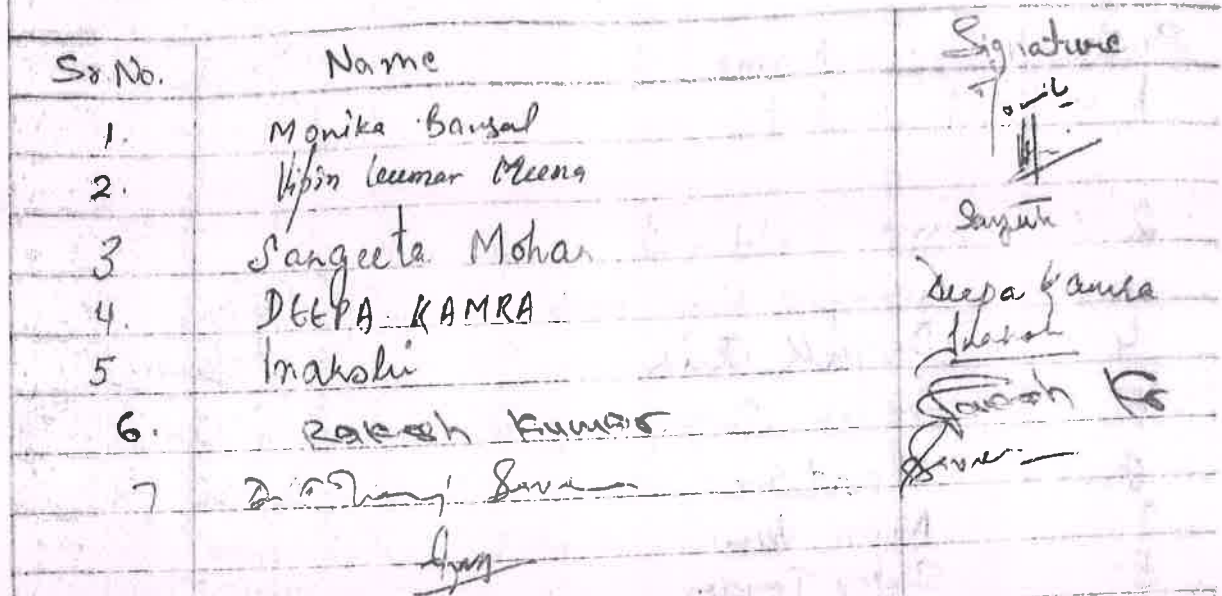 Sr. No. Name Signature
1. Monika Bansal
2. Vipin Kumar Meena
3 Sangeeta Mohan Sangeeta
4. DEEPA KAMRA Deepa Kamra
5 Inakshi
6. Rakesh Kumar Rakesh Kr
7 Dr.